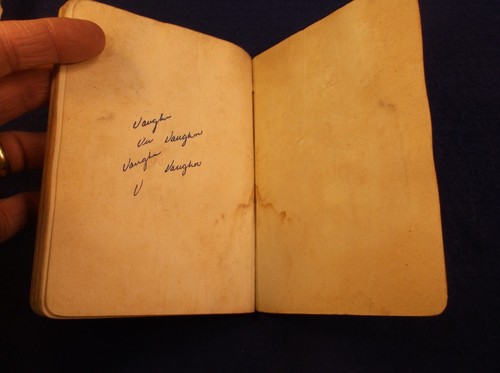 Vaughn
Vu Vaughn
Vaughn
V Vaughn